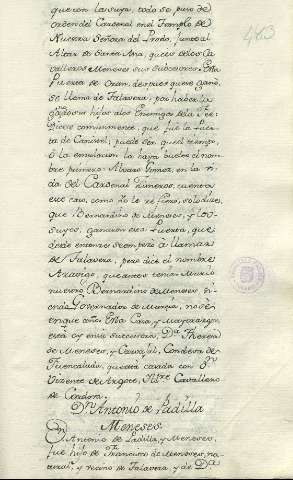 que con la suya, todo se puso de
orden del Cardenal en el Templo de
Nuestra Señora del Prado, junto al
Altar de Santa Ana, que es de los Ca-
valleros Meneses sus subcesores. Esta
Puerta de Oran, despues que se ganó,
se llama de Talavera, por haberla
ganado sus hijos a los Enemigos de la Fee:
Dicese comunmente, que fué la Puer-
ta de Canastel; puede ser que el tiempo,
ó la emulacion la haya buelto el nom-
bre primero. Alvaro Gomez, en la vi-
da del Cardenal Ximenez, cuenta
este caso, como Yo le refiero, solo dice,
que Bernardino de Meneses, y los
suyos, ganaron esta Puerta, que
desde entonces se empezó á llamar
de Talavera, pero dice el nombre
Aravigo, que antes tenia. Murió
nuestro Bernardino de Meneses, si-
endo Governador de Murcia, no sé
en que año. Esta Casa, y Mayorazgo
está oy en su successora, Dª Theresa
de Meneses, y Caravajal, Condesa de
Fuensalida, que está casada con Dn
Vizente de Argote, Ilstre Cavallero
de Cordova.
Dn Antonio de Padilla
Meneses.
Dn Antonio de Padilla, y Meneses,
fué hijo de Francisco de Meneses, na-
tural, y vecino de Talavera, y de Dª
483